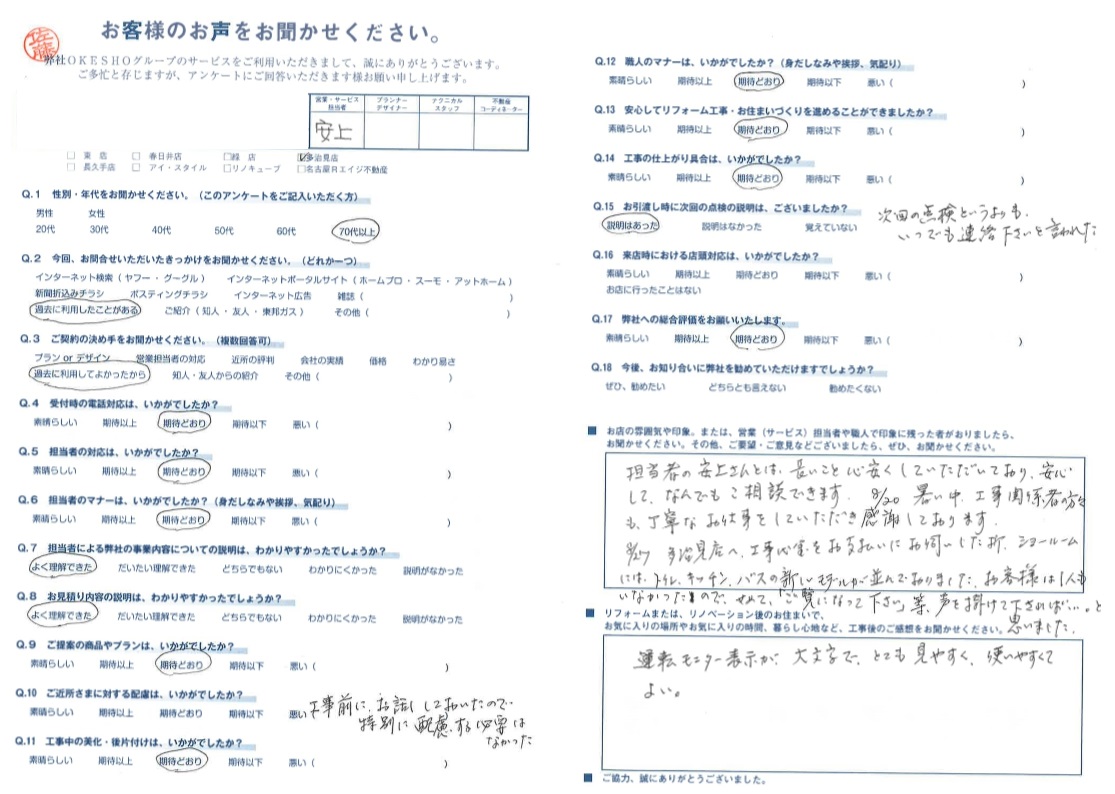 佐藤
お客様のお声をお聞かせください。
弊社OKESHOグループのサービスをご利用いただきまして、誠にありがとうございます。
ご多忙と存じますが、アンケートにご回答いただきます様お願い申し上げます。
営業・サービス担当者 プランナーデザイナー テクニカルスタッフ 不動産コーディネーター
安上
□ 東 店 □ 春日井店 □緑 店 ☑多治見店
□ 長久手店 □ アイ・スタイル □リノキューブ □名古屋Rエイジ不動産
Q.1 性別・年代をお聞かせください。（このアンケートをご記入いただく方）
男性 女性
20代 30代 40代 50代 60代 70代以上
Q.2 今回、お問合せいただいたきっかけをお聞かせください。（どれか一つ）
インターネット検索（ヤフー・グーグル） インターネットポータルサイト（ホームプロ・スーモ・アットホーム）
新聞折込みチラシ ポスティングチラシ インターネット広告 雑誌（ ）
過去に利用したことがある ご紹介（知人・友人・東邦ガス） その他（ ）
Q.3 ご契約の決め手をお聞かせください。（複数回答可）
プラン or デザイン 営業担当者の対応 近所の評判 会社の実績 価格 わかり易さ
過去に利用してよかったから 知人・友人からの紹介 その他（ ）
Q.4 受付時の電話対応は、いかがでしたか？
素晴らしい 期待以上 期待どおり 期待以下 悪い（ ）
Q.5 担当者の対応は、いかがでしたか？
素晴らしい 期待以上 期待どおり 期待以下 悪い（ ）
Q.6 担当者のマナーは、いかがでしたか？（身だしなみや挨拶、気配り）
素晴らしい 期待以上 期待どおり 期待以下 悪い（ ）
Q.7 担当者による弊社の事業内容についての説明は、わかりやすかったでしょうか？
よく理解できた だいたい理解できた どちらでもない わかりにくかった 説明がなかった
Q.8 お見積り内容の説明は、わかりやすかったでしょうか？
よく理解できた だいたい理解できた どちらでもない わかりにくかった 説明がなかった
Q.9 ご提案の商品やプランは、いかがでしたか？
素晴らしい 期待以上 期待どおり 期待以下 悪い（ ）
Q.10 ご近所さまに対する配慮は、いかがでしたか？
素晴らしい 期待以上 期待どおり 期待以下 悪い（
工事前に、お話ししておいたので
特別に配慮する必要は
なかった
Q.11 工事中の美化・後片付けは、いかがでしたか？
素晴らしい 期待以上 期待どおり 期待以下 悪い（ ）
Q.12 職人のマナーは、いかがでしたか？（身だしなみや挨拶、気配り）
素晴らしい 期待以上 期待どおり 期待以下 悪い（ ）
Q.13 安心してリフォーム工事・お住まいづくりを進めることができましたか？
素晴らしい 期待以上 期待どおり 期待以下 悪い（ ）
Q.14 工事の仕上がり具合は、いかがでしたか？
素晴らしい 期待以上 期待どおり 期待以下 悪い（ ）
Q.15 お引渡し時に次回の点検の説明は、ございましたか？
説明はあった 説明はなかった 覚えていない
次回の点検というよりも、
いつでも連絡下さいと言われた
Q.16 来店時における店頭対応は、いかがでしたか？
素晴らしい 期待以上 期待どおり 期待以下 悪い（ ）
お店に行ったことはない
Q.17 弊社への総合評価をお願いいたします。
素晴らしい 期待以上 期待どおり 期待以下 悪い（ ）
Q.18 今後、お知り合いに弊社を勧めていただけますでしょうか？
ぜひ、勧めたい どちらとも言えない 勧めたくない
■ お店の雰囲気や印象。または、営業（サービス）担当者や職人で印象に残った者がおりましたら、
お聞かせください。その他、ご要望・ご意見などございましたら、ぜひ、お聞かせください。
担当者の安上さんとは、長いこと心安くしていただいており、安心
して、なんでもご相談できます。8/20 暑い中、工事関係者の方々
も、丁寧なお仕事をしていただき感謝しております。
8/27 多治見店へ、工事代金をお支払いにお伺いした折、ショールーム
には、トイレ、キッチン、バスの新しいモデルが並んでおりました。お客様は1人も
いなかったので、せめて、「ご覧になって下さい」等、声を掛けて下されば…。と
思いました。
■ リフォームまたは、リノベーション後のお住まいで、
お気に入りの場所やお気に入りの時間、暮らし心地など、工事後のご感想をお聞かせください。
運転モニター表示が、大文字で、とても見やすく、使いやすくて
よい。
■ ご協力、誠にありがとうございました。